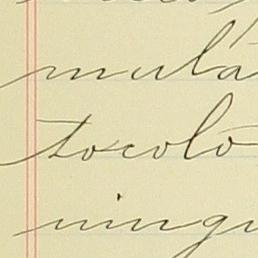 mulá
tocolo
ningu